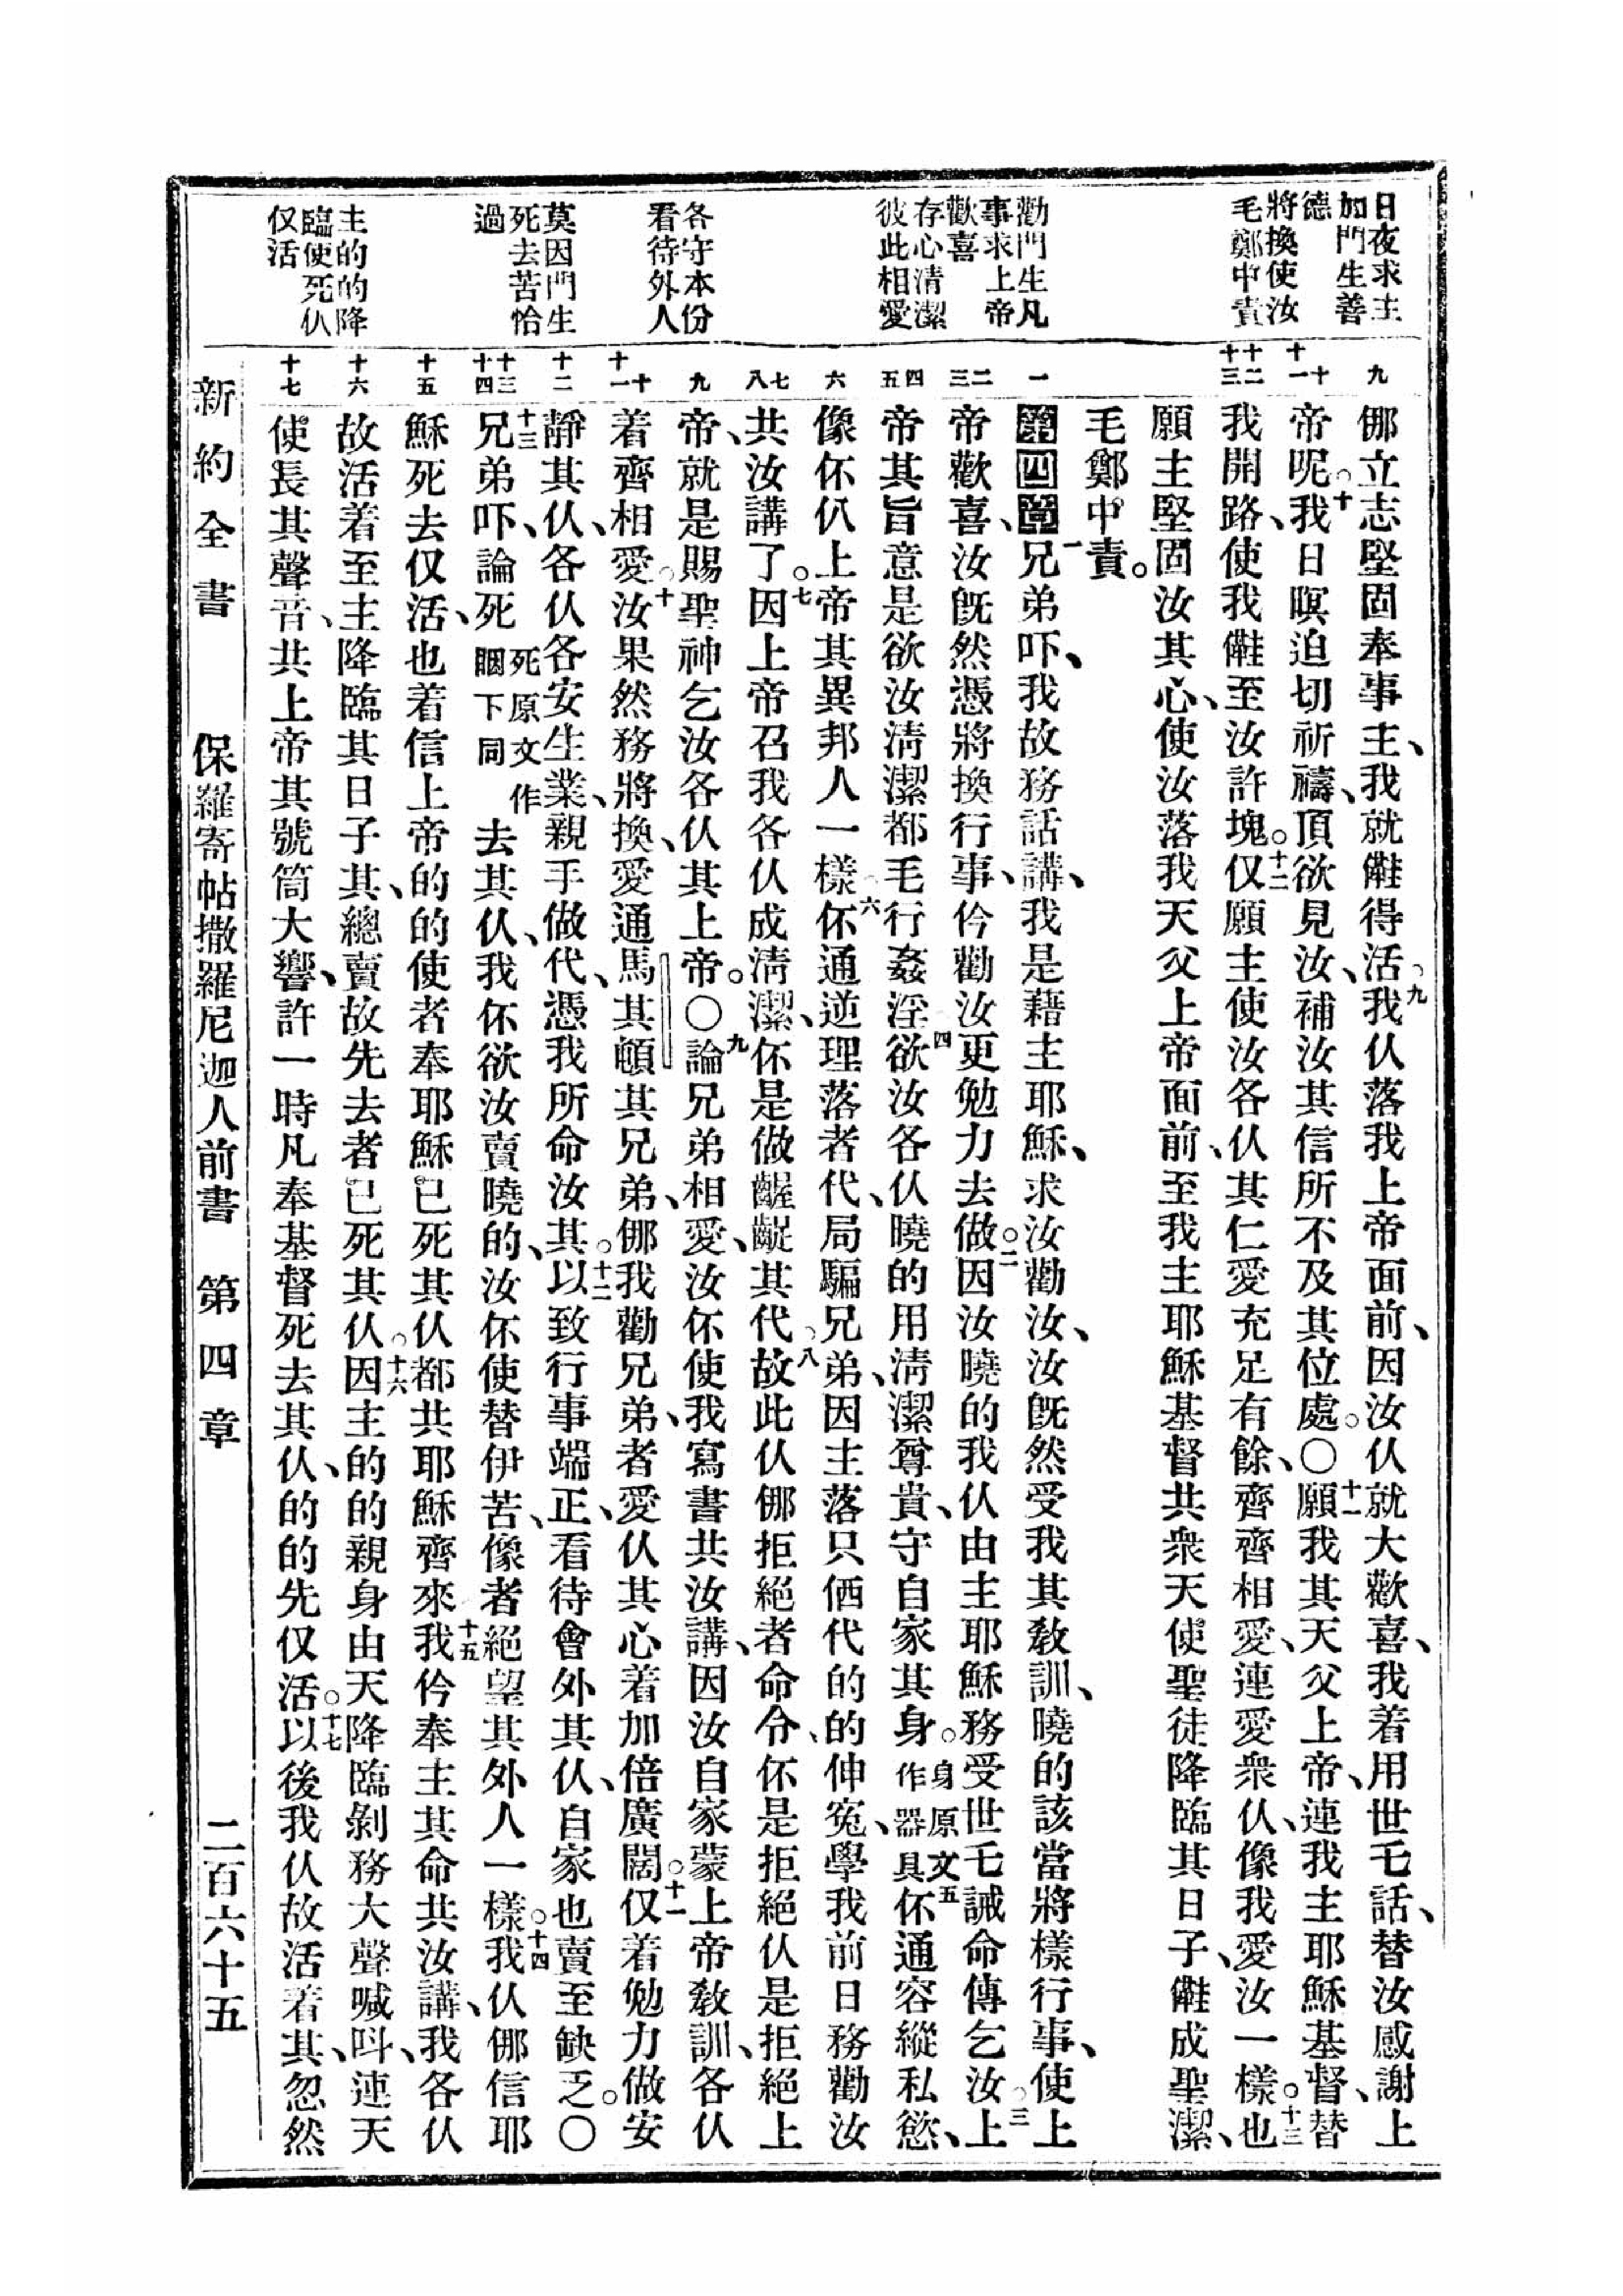 日夜求主
加門生善
德
將換使汝
毛鄭中責
勸門生凡
事求上帝
歡喜
存心清潔
彼此相愛
各守本份
看待外人
莫因門生
死去苦恰
過
主的的降
臨使死仈
仅活
九
十
十一
十二
十三
一
二
三
四
五
六
七
八
九
十
十一
十二
十三
十四
十五
十六
十七
𠆧立志堅固奉事主、我就𠉂得活、九我仈落我上帝面前、因汝仈就大歡喜、我着用世乇話、替汝感謝上
帝呢。十我日暝迫切祈禱、頂欲見汝、補汝其信所不及其位處。〇十一願我其天父上帝、連我主耶穌基督、替
我開路、使我𠉂至汝許塊。十二仅願主使汝各仈其仁愛充足有餘、齊齊相愛、連愛衆仈、像我愛汝一樣。十三也
願主堅固汝其心、使汝落我天父上帝面前、至我主耶穌基督共衆天使聖徒降臨其日子、𠉂成聖潔、
毛鄭中責。
第四章一兄弟吓、我故務話講、我是藉主耶穌、求汝勸汝、汝旣然受我其教訓、曉的該當將樣行事、使上
帝歡喜、汝旣然憑將換行事、仱勸汝更勉力去做。二因汝曉的我仈由主耶穌務受世乇誡命傳乞汝、三上
帝其旨意是欲汝淸潔都毛行姦淫、四欲汝各仈曉的用淸潔尊貴、守自家其身。身原文作器具五伓通容縱私慾、
像伓仈上帝其異邦人一樣、六伓通逆理落者代、局騙兄弟、因主落只㑚代的的伸寃、學我前日務勸汝
共汝講了。七因上帝召我各仈成淸潔、伓是做齷齪其代、八故此仈𠆧拒絕者命令、伓是拒絕仈是拒絕上
帝、就是賜聖神乞汝各仈其上帝。〇九論兄弟相愛、汝伓使我寫書共汝講、因汝自家蒙上帝教訓、各仈
着齊相愛、十汝果然務將換、愛通馬其頓其兄弟、𠆧我勸兄弟、者愛仈其心着加倍廣闊。十一仅着勉力做安
靜其仈、各仈各安生業、親手做代、憑我所命汝其。十二以致行事端正、看待會外其仈、自家也賣至缺乏。〇
十三兄弟吓、論死死原文作瞓下同去其仈、我伓欲汝賣曉的、汝伓使替伊苦、像者絕望其外人一樣。十四我仈𠆧信耶
穌死去仅活、也着信上帝的的使者奉耶穌已死其仈、都共耶穌齊來、十五我仱奉主其命共汝講、我各仈
故活着至主降臨其日子其、總賣故先去者已死其仈、十六因主的的親身由天降臨剝務大聲喊呌、連天
使長其聲音、共上帝其號筒大響、許一時凡奉基督死去其仈、的的先仅活。十七以後我仈故活着其、忽然
新約全書　保羅寄帖撒羅尼迦人前書　第四章　二百六十五